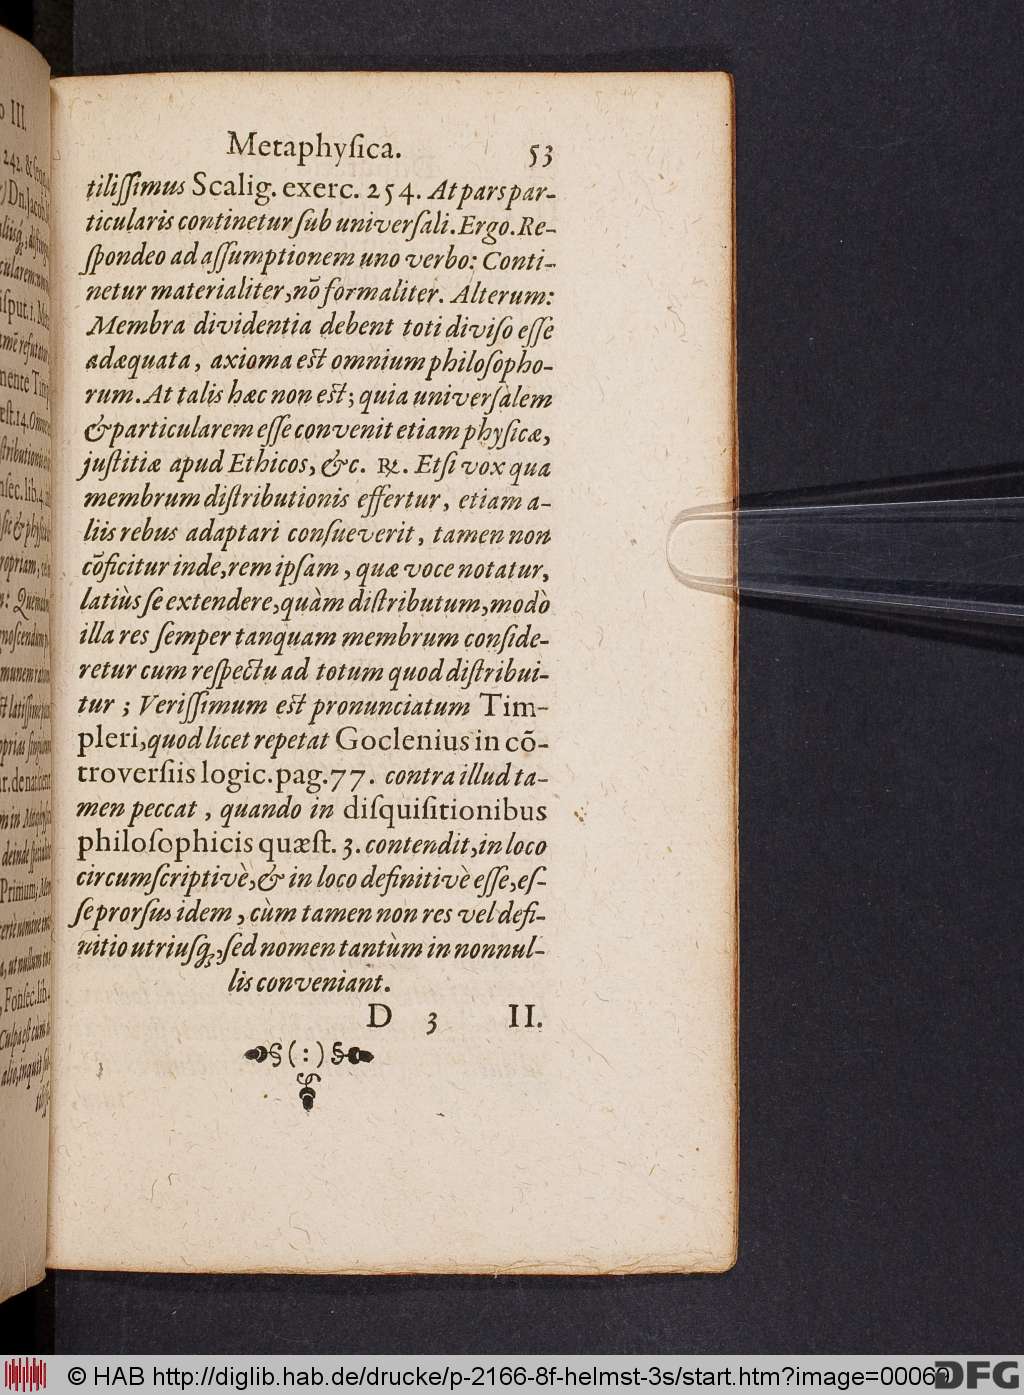 Metaphyſica. 53
tiliſſimus Scalig. exerc. 254. At pars par-
ticularis continetur ſub univerſali. Ergo. Re-
ſpondeo ad aſſumptionem uno verbo: Conti-
netur materialiter, nõ formaliter. Alterum:
Membra dividentia debent toti diviſo eſſe
adæquata, axioma eſt omnium philoſopho-
rum. At talis hæc non eſt; quia univerſalem
& particularem eſſe convenit etiam phyſicæ,
juſtitiæ apud Ethicos, &c. ℞. Etſi vox qua
membrum diſtributionis effertur, etiam a-
liis rebus adaptari conſueverit, tamen non
cõficitur inde, rem ipſam, quæ voce notatur,
latiùs ſe extendere, quàm diſtributum, modò
illa res ſemper tanquam membrum conſide-
retur cum reſpectu ad totum quod diſtribui-
tur; Veriſſimum eſt pronunciatum Tim-
pleri, quod licet repetat Goclenius in cõ-
troverſiis logic. pag. 77. contra illud ta-
men peccat, quando in diſquiſitionibus
philoſophicis quæſt. 3. contendit, in loco
circumſcriptivè, & in loco definitivè eſſe, eſ-
ſe prorſus idem, cùm tamen non res vel defi-
nitio utriuſq;, ſed nomen tantùm in nonnul-
lis conveniant.
D 3 II.
(:)
© HAB http://diglib.hab.de/drucke/p-2166-8f-helmst-3s/start.htm?image=00069
DFG